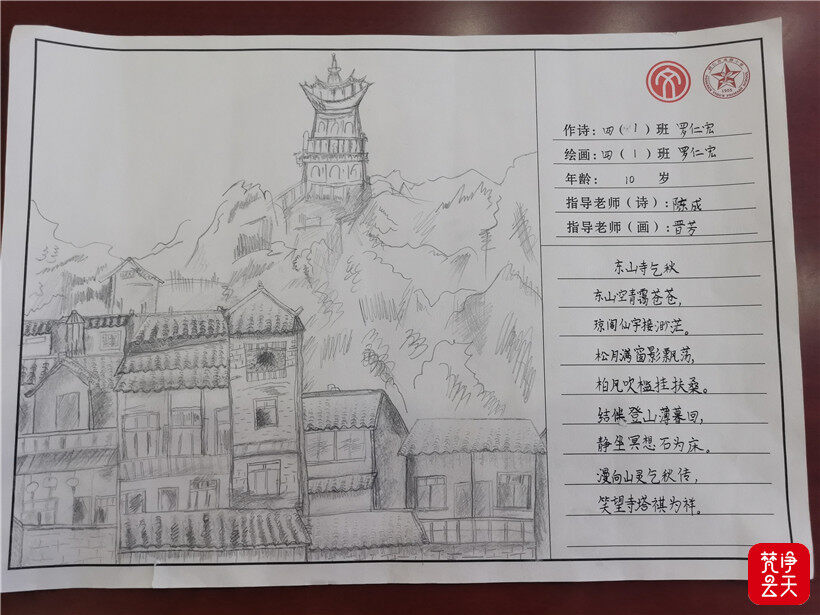 作诗：四（1）班 罗仁宏
绘画：四（1）班 罗仁宏
年龄： 10 岁
指导老师（诗）：陈成
指导老师（画）：晋芳
东山寺乞秋
东山空青霭苍苍，
琼阁仙宇接渺茫。
松月满窗影飘荡，
柏风吹槛挂扶桑。
结偶登山薄暮回，
静坐冥想石为床。
漫向山灵乞秋信，
笑望寺塔祺为祥。
梵净
云天